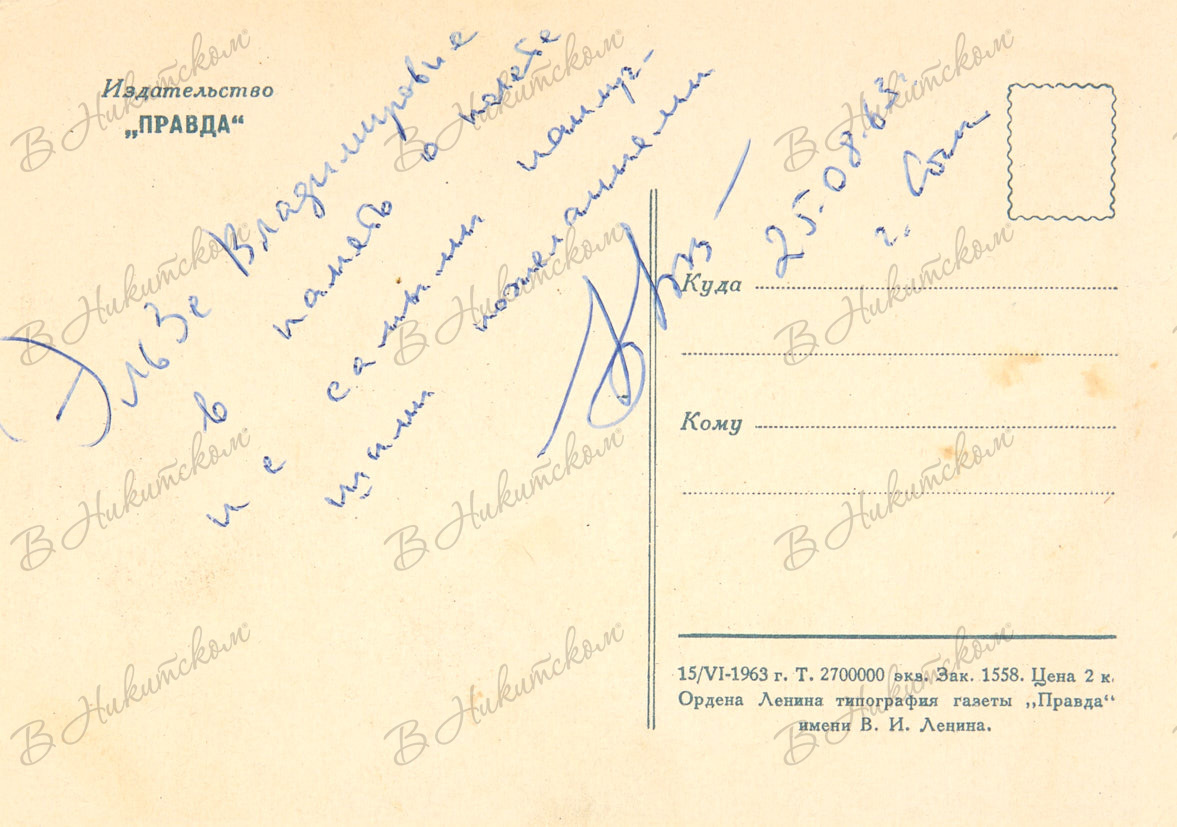 Издательство
„ПРАВДА“
Эльзе Владимировне
в память о полете
с самыми наилучшими пожеланиями
25.08.63г.
г.
Куда
Кому
15/VI-1963 г. Т. 2700000 экв. Зак. 1558. Цена 2 к.
Ордена Ленина типография газеты „Правда“
имени В. И. Ленина.
В Никитском